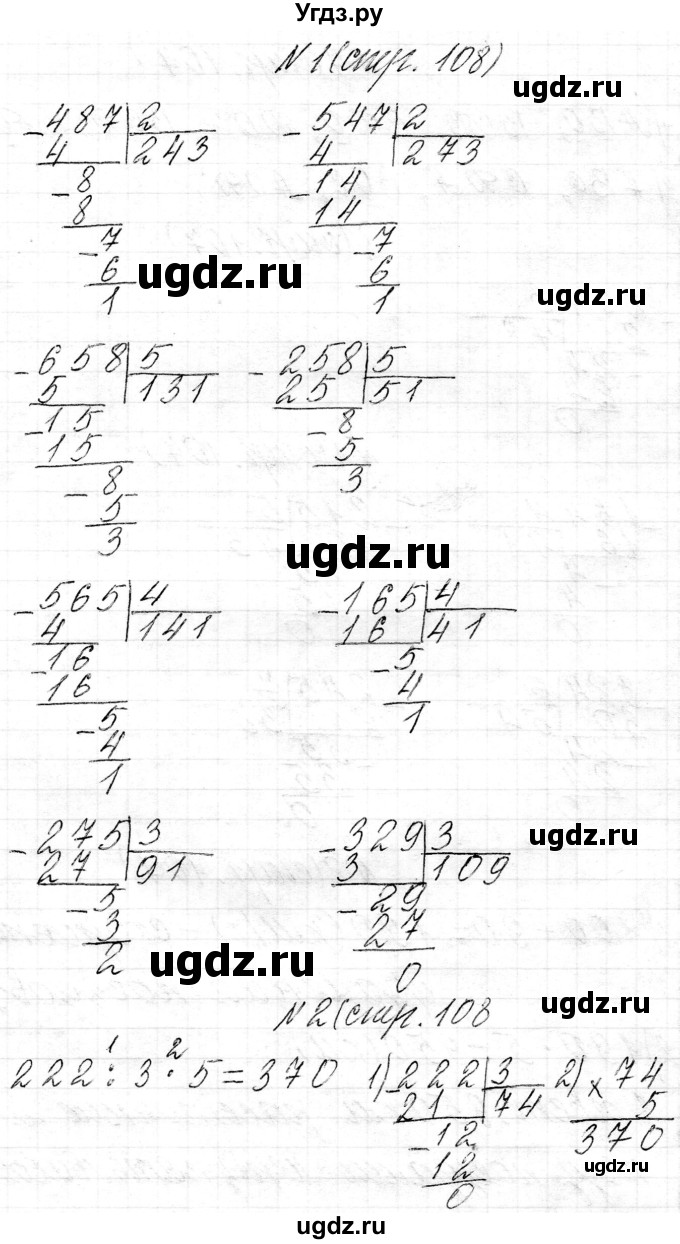 Угдз.ру
№1(стр. 108)
ugdz.ru
- 487 | 2 - 547 | 2
4 243 4 273
- 8 - 14
8 14
- 7 - 7
6 6
1 1
ugdz.ru
ugdz.ru
- 658 | 5 - 258 | 5
5 131 25 51
- 15 - 8
15 5
- 8 3
5
3
ugdz.ru
- 565 | 4 - 165 | 4
4 141 16 41
- 16 - 5
16 4
- 5 1
4
1
- 275 | 3 - 329 | 3
27 91 3 109
- 5 - 29
3 27
2 0
ugdz.ru
ugdz.ru
№2(стр. 108
ugdz.ru
1 2
222 : 3 · 5 = 370 1) 222 | 3 2) × 74
21 74 5
- 12 370
12
0
ugdz.ru
ugdz.ru